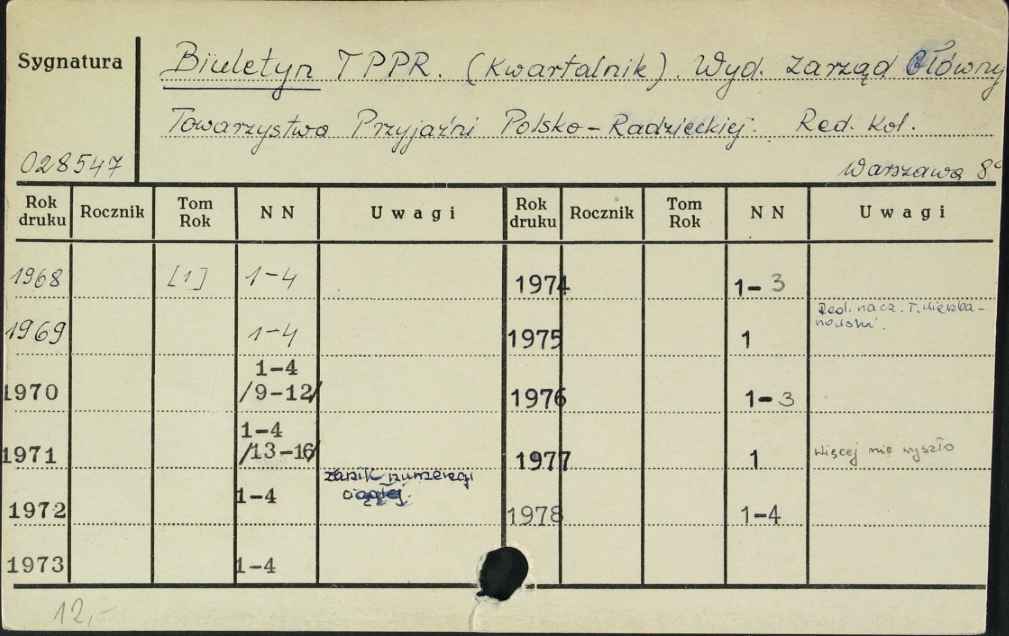 Sygnatura
028547
Biuletyn TPPR. (Kwartalnik). Wyd. Zarząd Główny
Towarzystwa Przyjaźni Polsko-Radzieckiej. Red. Kol.
Warszawa 8°
Rok druku Rocznik Tom Rok N N Uwagi Rok druku Rocznik Tom Rok N N Uwagi
1968 [1] 1-4
1969 1-4
1970 1-4 /9-12/
1971 1-4 /13-16/
1972 1-4 zanik numeracji ciągłej.
1973 1-4
1974 1-3
Red. nacz. T.
1975 1
1976 1-3
1977 1 Więcej nie wyszło
1978 1-4
12,-